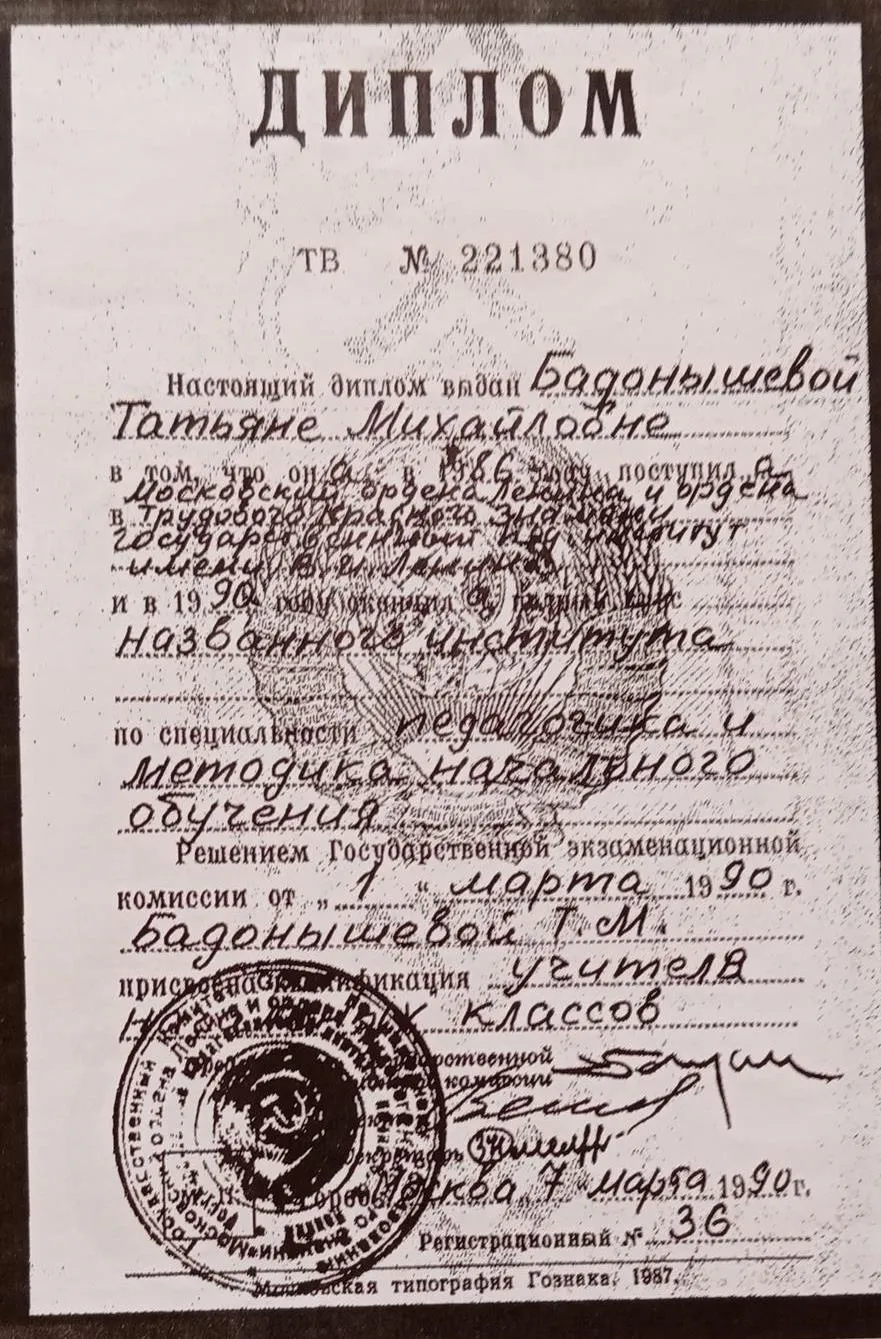 ДИПЛОМ
ТВ № 221380
Настоящий диплом выдан Бадонышевой
Татьяне Михайловне
в том, что он а в 1986 году поступил а
Московский ордена Ленина и ордена
в Трудового Красного Знамени
государственный пед. институт
имени В.И. Ленина
и в 1990 году окончил а полный курс
названного института
по специальности педагогика и
методика начального
обучения
Решением Государственной экзаменационной
комиссии от „ 1 “ марта 1990 г.
Бадонышевой Т. М.
присвоена квалификация учителя
классов
Государственной
комиссии
Секретарь
Город Москва 7 марта 1990 г.
Регистрационный № 36
Московская типография Гознака. 1987.